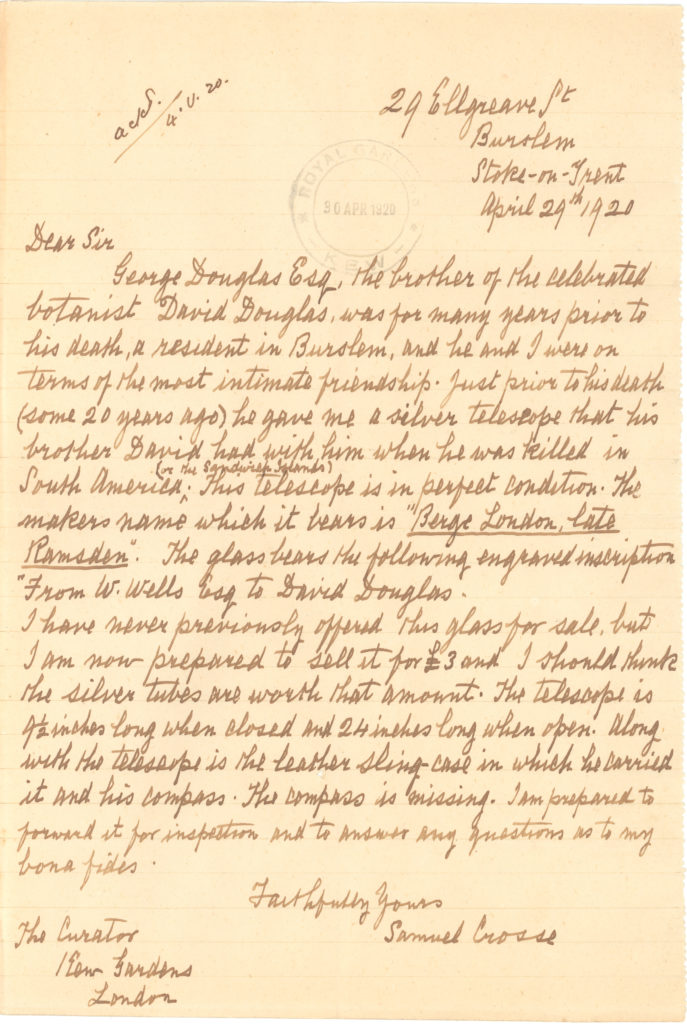 ackd.
4.V.20.
29 Ellgreave St
Burslem
Stoke-on-Trent
April 29th 1920
ROYAL GARDENS
30 APR 1920
KEW
Dear Sir
George Douglas Esq, the brother of the celebrated
botanist David Douglas, was for many years prior to
his death, a resident in Burslem, and he and I were on
terms of the most intimate friendship. Just prior to his death
(some 20 years ago) he gave me a silver telescope that his
brother David had with him when he was killed in
(or the Sandwich Islands)
South America. This telescope is in perfect condition. The
makers name which it bears is "Berge London, late
Ramsden". The glass bears the following engraved inscription
"From W. Wells Esq to David Douglas.
I have never previously offered this glass for sale, but
I am now prepared to sell it for £3 and I should think
the silver tubes are worth that amount. The telescope is
9½ inches long when closed and 24 inches long when open. Along
with the telescope is the leather sling-case in which he carried
it and his compass. The compass is missing. I am prepared to
forward it for inspection and to answer any questions as to my
bona fides.
Faithfully Yours
Samuel Crosse
The Curator
Kew Gardens
London